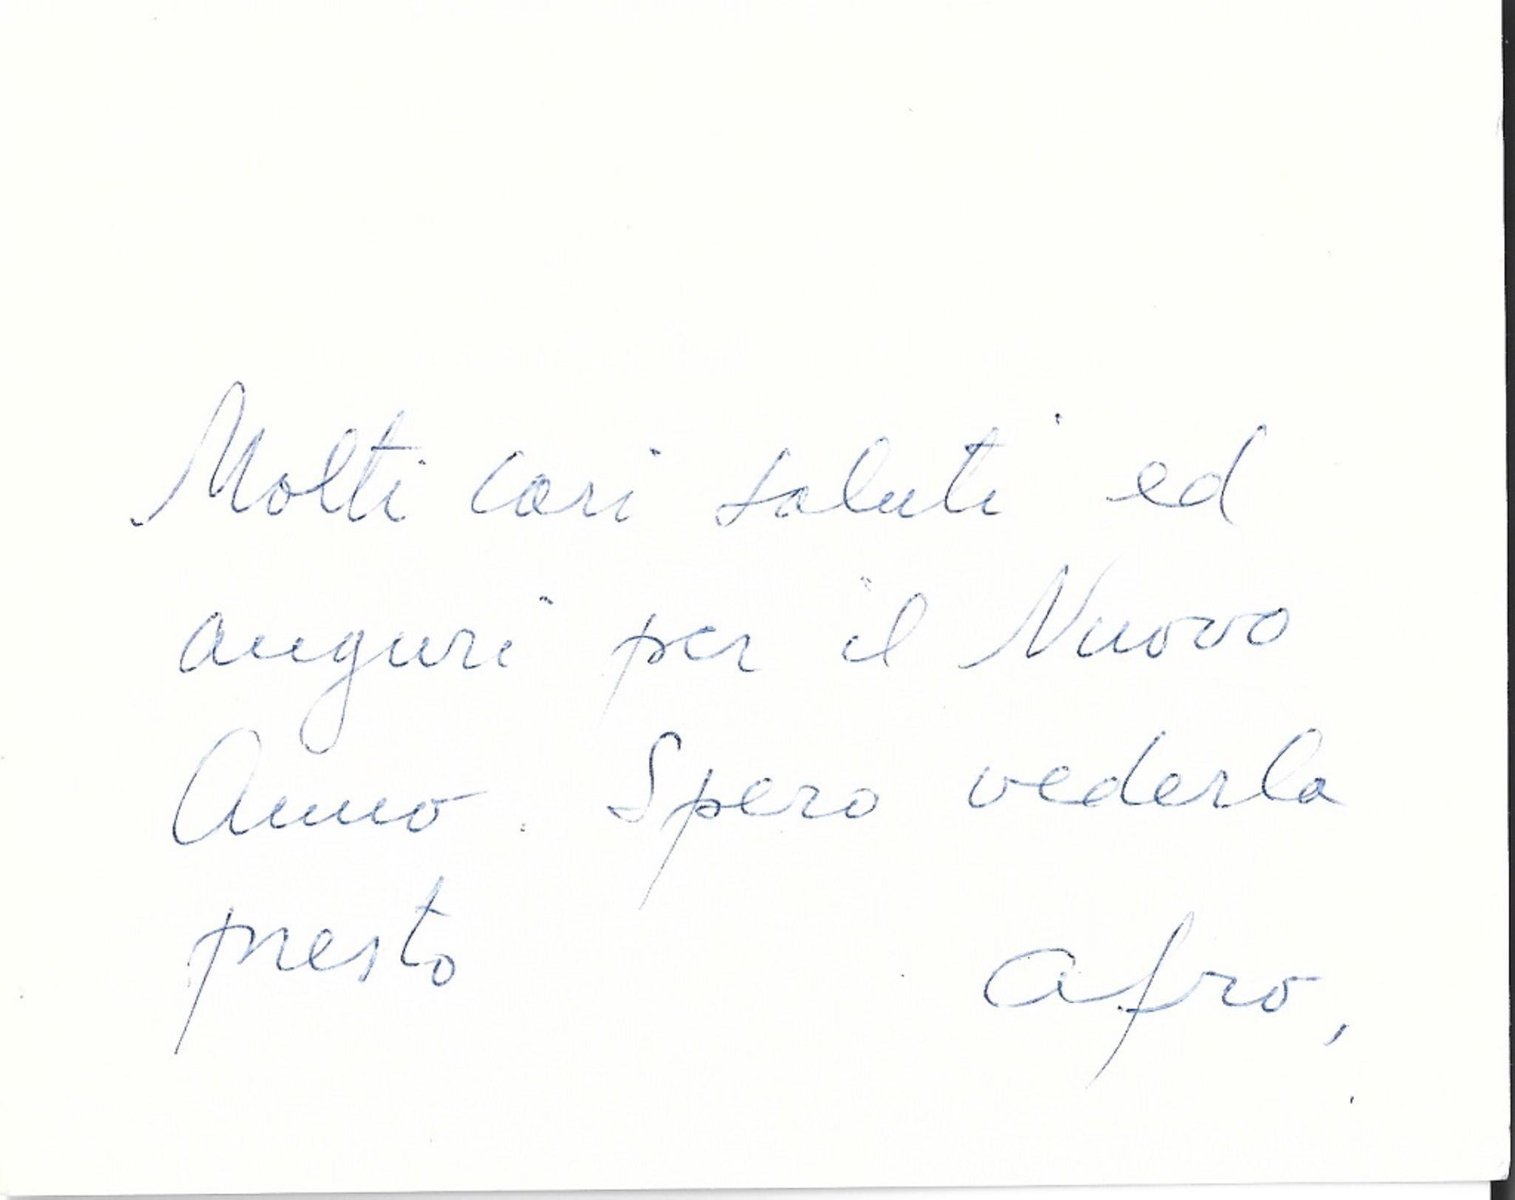 Molti cari saluti ed
auguri per il Nuovo
Anno. Spero vederla
presto
afro,